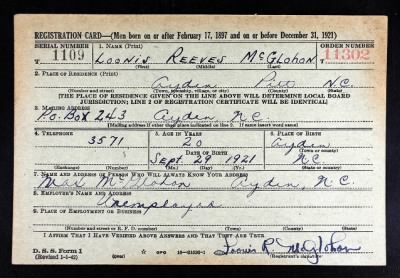 REGISTRATION CARD—(Men born on or after February 17, 1897 and on or before December 31, 1921)
SERIAL NUMBER 1. NAME (Print) ORDER NUMBER
1109 LOONIS REEVES McGLOHON 11302
(First) (Middle) (Last)
2. PLACE OF RESIDENCE (Print)
Ayden Pitt N.C.
(Number and street) (Town, township, village, or city) (County) (State)
[THE PLACE OF RESIDENCE GIVEN ON THE LINE ABOVE WILL DETERMINE LOCAL BOARD
JURISDICTION; LINE 2 OF REGISTRATION CERTIFICATE WILL BE IDENTICAL]
3. MAILING ADDRESS
P.O. Box 243 Ayden N.C.
[Mailing address if other than place indicated on line 2. If same insert word same]
4. TELEPHONE 5. AGE IN YEARS 6. PLACE OF BIRTH
3571 20 Ayden
DATE OF BIRTH (Town or county)
Sept. 29 1921 NC
(Exchange) (Number) (Mo.) (Day) (Yr.) (State or country)
7. NAME AND ADDRESS OF PERSON WHO WILL ALWAYS KNOW YOUR ADDRESS
Max McGlohon Ayden, N.C.
8. EMPLOYER'S NAME AND ADDRESS
Unemployed
9. PLACE OF EMPLOYMENT OR BUSINESS
(Number and street or R. F. D. number) (Town) (County) (State)
I AFFIRM THAT I HAVE VERIFIED ABOVE ANSWERS AND THAT THEY ARE TRUE.
D. S. S. Form 1 GPO Loonis R. McGlohon
(Revised 1-1-42) (Registrant's signature)